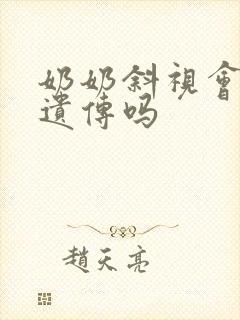 奶奶斜視會
遺傳嗎
趙天亮